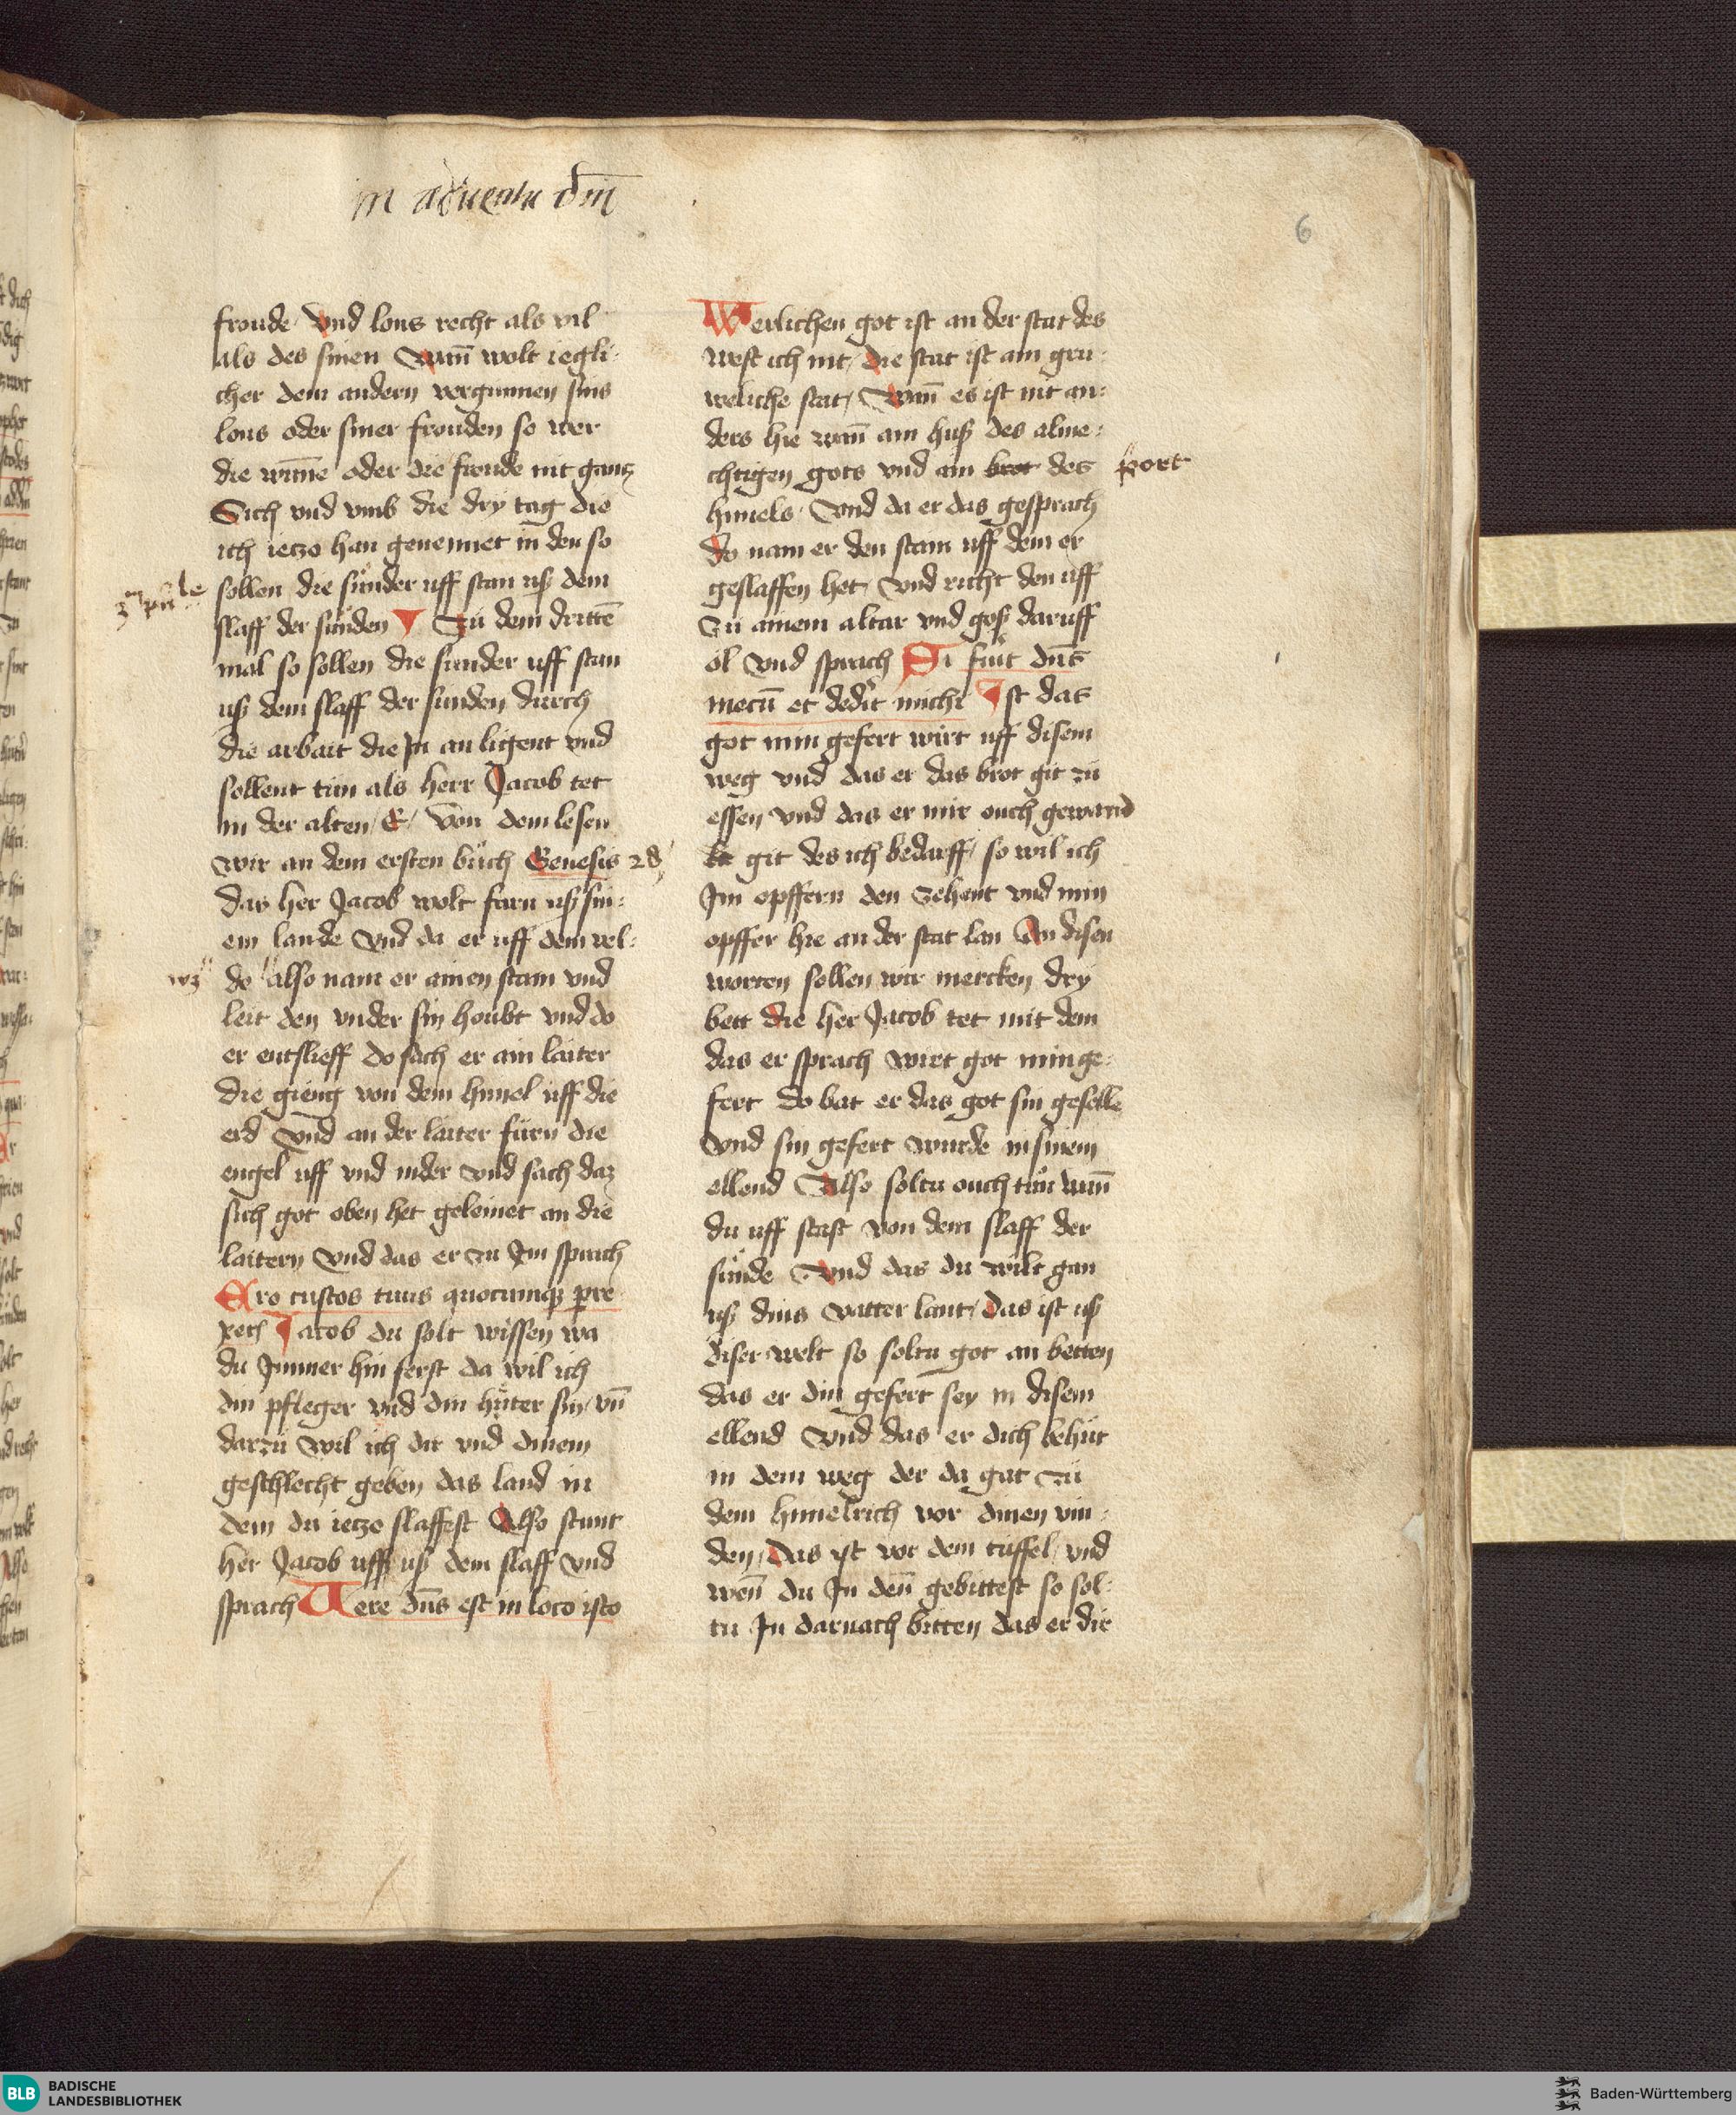 in aduentu dni̅
6
froude vnd lons recht als vil
als des sinen Wan̅ wolt iegli:
cher dem andern vergunnen sins
lons oder siner frouden so wer
die wu̅ne oder die froude nit gantz
Sich vnd vmb die dry tag die
ich ietzo han genennet in den so
sollen die sünder uff stan uß dem
slaff der sünden Zu dem dritte̅
mal so sollen die sunder uff stan
uß dem slaff der sunden durch
die arbait die In an ligent vnd
sollent tun als herr Jacob tet
in der alten E Von dem lesen
wir an dem ersten buch Genesis 28
das her Jacob wolt farn uß sin:
em lande vnd da er uff dem vel:
wz
de also nam er ainen stain vnd
leit den vnder sin houbt vnd do
er entslieff do sach er ain laiter
die gieng von dem himel uff die
erd vnd an der laiter fürn die
engel uff vnd nider vnd sach daz
sich got oben het geleinet an die
laitern vnd das er zu Im sprach
Ero custos tuus quocumq; perre
xeris Jacob du solt wissen wa
du Immer hin ferst da wil ich
din pfleger vnd din hüter sin vn̅
darzu wil ich dir vnd dinem
geschlecht geben das land in
dem du ietzo slaffest Also stunt
her Jacob uff uß dem slaff vnd
sprach Uere dn̅s est in loco isto
Werlichen got ist an der stat des
west ich nit die stat ist ain gru:
weliche stat Wan̅ es ist nit an:
ders hie wan̅ ain huß des alme:
chtigen gots vnd ain brot des port
himels Vnd da er das gesprach
do nam er den stain uff dem er
geslaffen het vnd richt den uff
zu ainem altar vnd goß daruff
öl vnd sprach Si fuit dn̅s
mecu̅ et dedit michi Ist das
got min gefert wirt uff disem
weg vnd das er das brot git zu
essen vnd das er mir ouch gewand
git des ich bedarff so wil ich
Im opffern den zehent vnd min
opffer hie an der stat lan An disen
worten sollen wir mercken dry
bett die her Jacob tet mit dem
das er sprach wirt got min ge:
fert do bat er das got sin geselle
vnd sin gefert wurde in sinem
ellend Also soltu ouch tun wan̅
du uff stast von dem slaff der
sünde vnd das du wilt gan
uß dins vatter lant das ist uß
diser welt so soltu got an betten
das er din gefert sey in disem
ellend vnd das er dich behüt
in dem weg der da gat zu
dem himelrich vor dinen vin:
den das ist vor dem tüffel vnd
wen̅ du In den̅ gebittest so sol:
tu In darnach bitten das er dir
BLB BADISCHE
LANDESBIBLIOTHEK
Baden-Württemberg